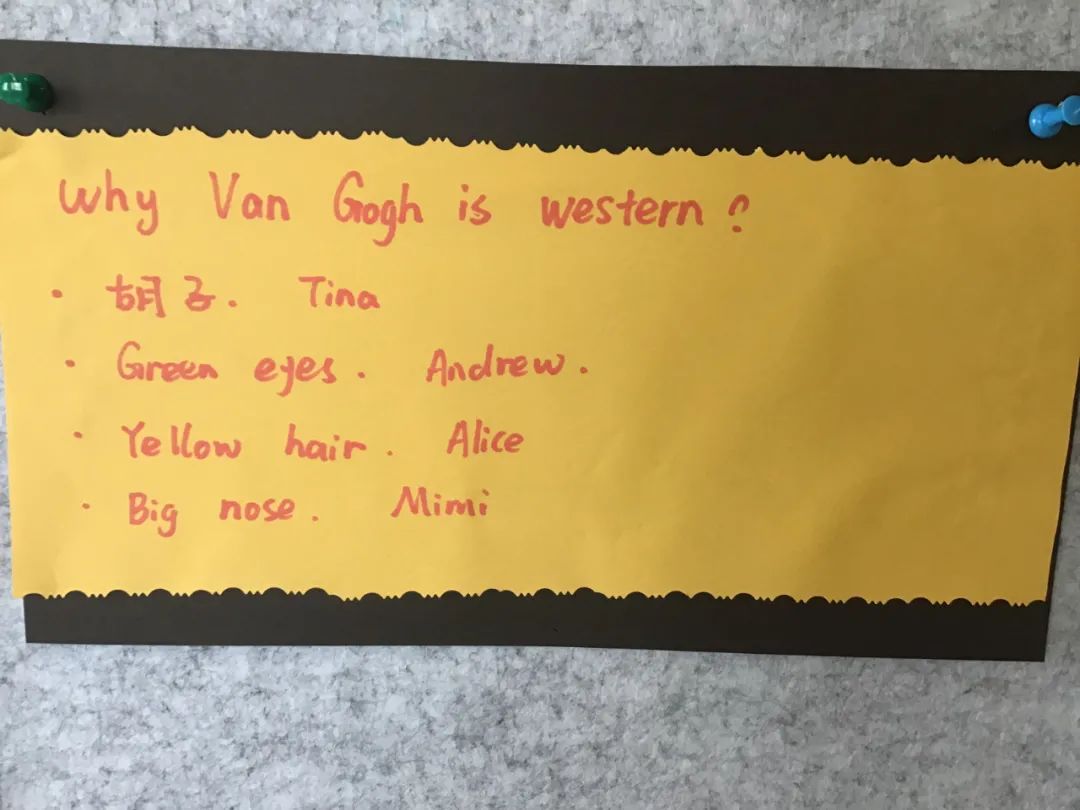 Why Van Gogh is western?
· 胡子. Tina
· Green eyes. Andrew.
· Yellow hair. Alice
· Big nose. Mimi